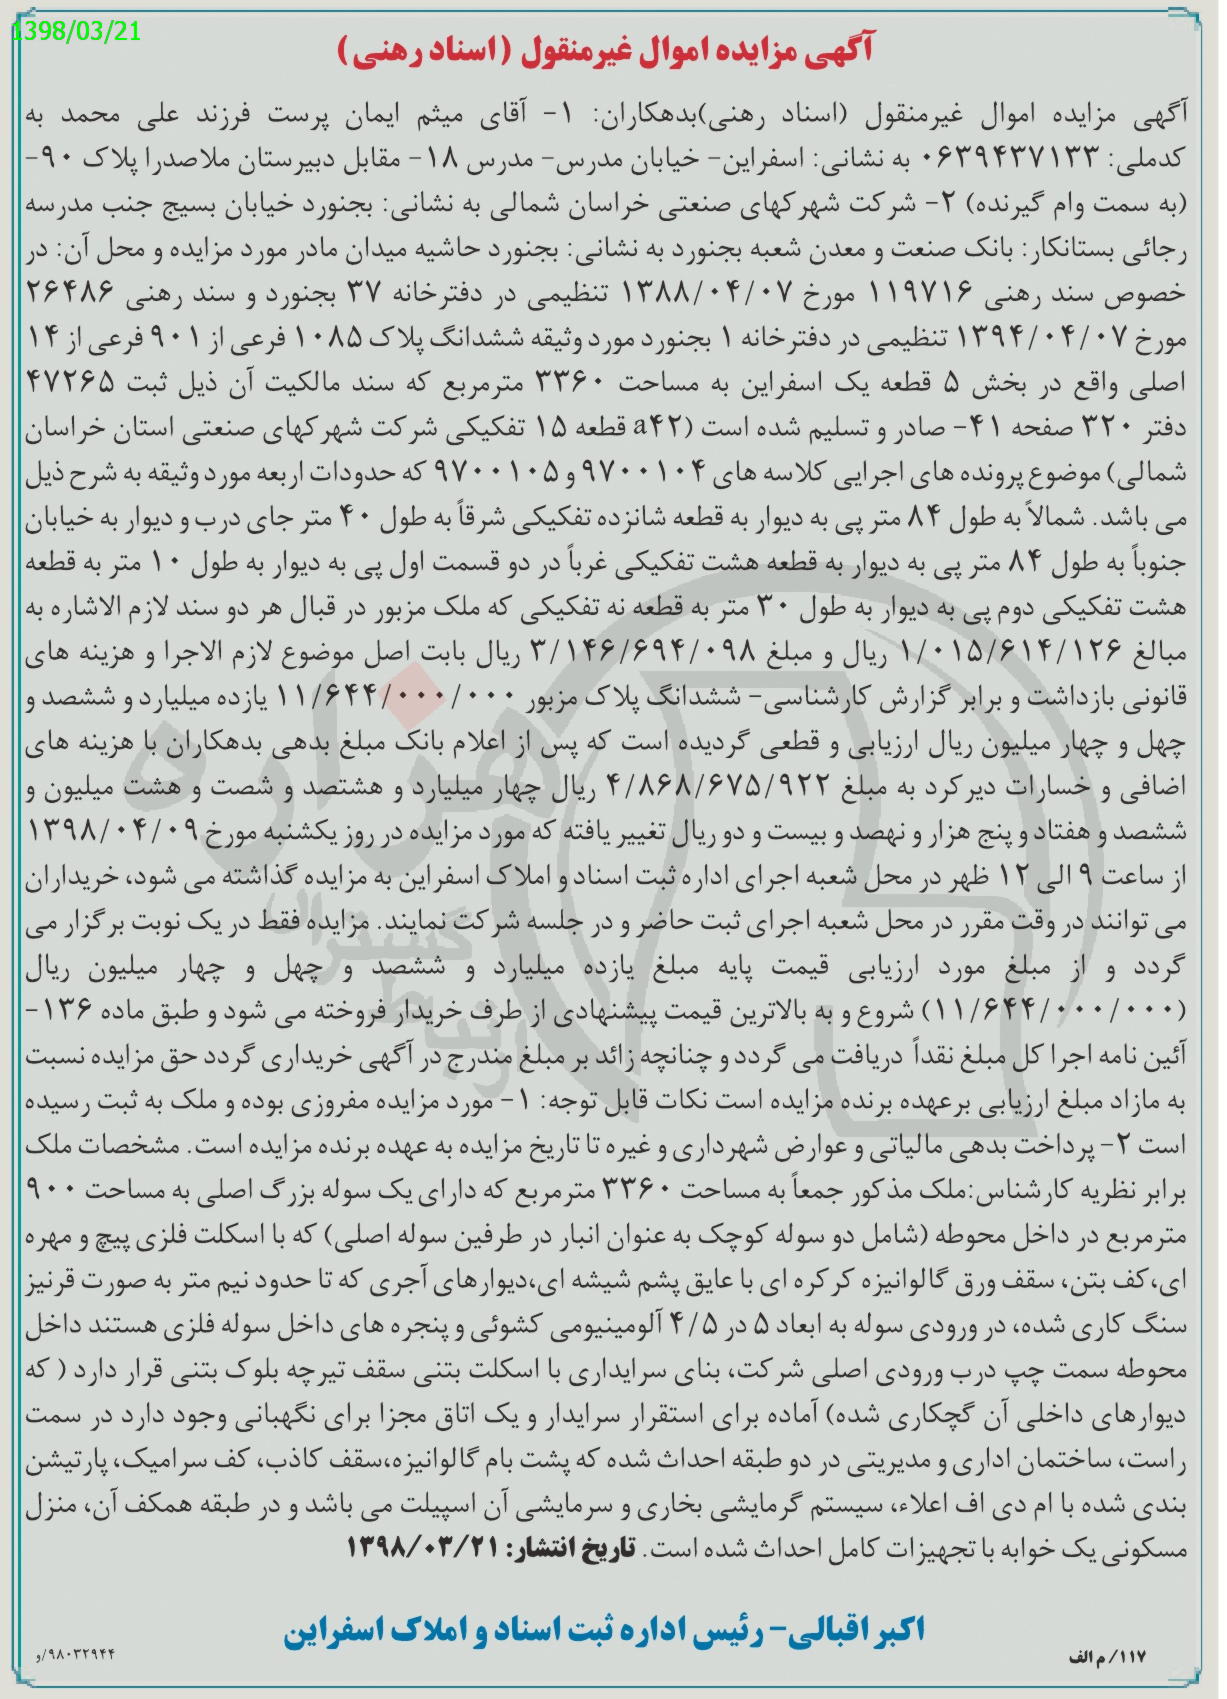 1398/03/21
آگهی مزایده اموال غیرمنقول (اسناد رهنی)
آگهی مزایده اموال غیرمنقول (اسناد رهنی)بدهکاران: ۱- آقای میثم ایمان پرست فرزند علی محمد به
کدملی: ۰۶۳۹۴۳۷۱۳۳ به نشانی: اسفراین- خیابان مدرس- مدرس ۱۸- مقابل دبیرستان ملاصدرا پلاک ۹۰-
(به سمت وام گیرنده) ۲- شرکت شهرکهای صنعتی خراسان شمالی به نشانی: بجنورد خیابان بسیج جنب مدرسه
رجائی بستانکار: بانک صنعت و معدن شعبه بجنورد به نشانی: بجنورد حاشیه میدان مادر مورد مزایده و محل آن: در
خصوص سند رهنی ۱۱۹۷۱۶ مورخ ۱۳۸۸/۰۴/۰۷ تنظیمی در دفترخانه ۳۷ بجنورد و سند رهنی ۲۶۴۸۶
مورخ ۱۳۹۴/۰۴/۰۷ تنظیمی در دفترخانه ۱ بجنورد مورد وثیقه ششدانگ پلاک ۱۰۸۵ فرعی از ۹۰۱ فرعی از ۱۴
اصلی واقع در بخش ۵ قطعه یک اسفراین به مساحت ۳۳۶۰ مترمربع که سند مالکیت آن ذیل ثبت ۴۷۲۶۵
دفتر ۳۲۰ صفحه ۴۱- صادر و تسلیم شده است (a۴۲ قطعه ۱۵ تفکیکی شرکت شهرکهای صنعتی استان خراسان
شمالی) موضوع پرونده های اجرایی کلاسه های ۹۷۰۰۱۰۴ و ۹۷۰۰۱۰۵ که حدودات اربعه مورد وثیقه به شرح ذیل
می باشد. شمالاً به طول ۸۴ متر پی به دیوار به قطعه شانزده تفکیکی شرقاً به طول ۴۰ متر جای درب و دیوار به خیابان
جنوباً به طول ۸۴ متر پی به دیوار به قطعه هشت تفکیکی غرباً در دو قسمت اول پی به دیوار به طول ۱۰ متر به قطعه
هشت تفکیکی دوم پی به دیوار به طول ۳۰ متر به قطعه نه تفکیکی که ملک مزبور در قبال هر دو سند لازم الاشاره به
مبالغ ۱/۰۱۵/۶۱۴/۱۲۶ ریال و مبلغ ۳/۱۴۶/۶۹۴/۰۹۸ ریال بابت اصل موضوع لازم الاجرا و هزینه های
قانونی بازداشت و برابر گزارش کارشناسی- ششدانگ پلاک مزبور ۱۱/۶۴۴/۰۰۰/۰۰۰ یازده میلیارد و ششصد و
چهل و چهار میلیون ریال ارزیابی و قطعی گردیده است که پس از اعلام بانک مبلغ بدهی بدهکاران با هزینه های
اضافی و خسارات دیرکرد به مبلغ ۴/۸۶۸/۶۷۵/۹۲۲ ریال چهار میلیارد و هشتصد و شصت و هشت میلیون و
ششصد و هفتاد و پنج هزار و نهصد و بیست و دو ریال تغییر یافته که مورد مزایده در روز یکشنبه مورخ ۱۳۹۸/۰۴/۰۹
از ساعت ۹ الی ۱۲ ظهر در محل شعبه اجرای اداره ثبت اسناد و املاک اسفراین به مزایده گذاشته می شود، خریداران
می توانند در وقت مقرر در محل شعبه اجرای ثبت حاضر و در جلسه شرکت نمایند. مزایده فقط در یک نوبت برگزار می
گردد و از مبلغ مورد ارزیابی قیمت پایه مبلغ یازده میلیارد و ششصد و چهل و چهار میلیون ریال
(۱۱/۶۴۴/۰۰۰/۰۰۰) شروع و به بالاترین قیمت پیشنهادی از طرف خریدار فروخته می شود و طبق ماده ۱۳۶-
آئین نامه اجرا کل مبلغ نقداً دریافت می گردد و چنانچه زائد بر مبلغ مندرج در آگهی خریداری گردد حق مزایده نسبت
به مازاد مبلغ ارزیابی برعهده برنده مزایده است نکات قابل توجه: ۱- مورد مزایده مفروزی بوده و ملک به ثبت رسیده
است ۲- پرداخت بدهی مالیاتی و عوارض شهرداری و غیره تا تاریخ مزایده به عهده برنده مزایده است. مشخصات ملک
برابر نظریه کارشناس:ملک مذکور جمعاً به مساحت ۳۳۶۰ مترمربع که دارای یک سوله بزرگ اصلی به مساحت ۹۰۰
مترمربع در داخل محوطه (شامل دو سوله کوچک به عنوان انبار در طرفین سوله اصلی) که با اسکلت فلزی پیچ و مهره
ای،کف بتن، سقف ورق گالوانیزه کرکره ای با عایق پشم شیشه ای،دیوارهای آجری که تا حدود نیم متر به صورت قرنیز
سنگ کاری شده، در ورودی سوله به ابعاد ۵ در ۴/۵ آلومینیومی کشوئی و پنجره های داخل سوله فلزی هستند داخل
محوطه سمت چپ درب ورودی اصلی شرکت، بنای سرایداری با اسکلت بتنی سقف تیرچه بلوک بتنی قرار دارد ( که
دیوارهای داخلی آن گچکاری شده) آماده برای استقرار سرایدار و یک اتاق مجزا برای نگهبانی وجود دارد در سمت
راست، ساختمان اداری و مدیریتی در دو طبقه احداث شده که پشت بام گالوانیزه،سقف کاذب، کف سرامیک، پارتیشن
بندی شده با ام دی اف اعلاء، سیستم گرمایشی بخاری و سرمایشی آن اسپیلت می باشد و در طبقه همکف آن، منزل
مسکونی یک خوابه با تجهیزات کامل احداث شده است. تاریخ انتشار: ۱۳۹۸/۰۳/۲۱
اکبر اقبالی- رئیس اداره ثبت اسناد و املاک اسفراین
۱۱۷/ م الف
۹۸۰۳۲۹۴۴/و
هزاره